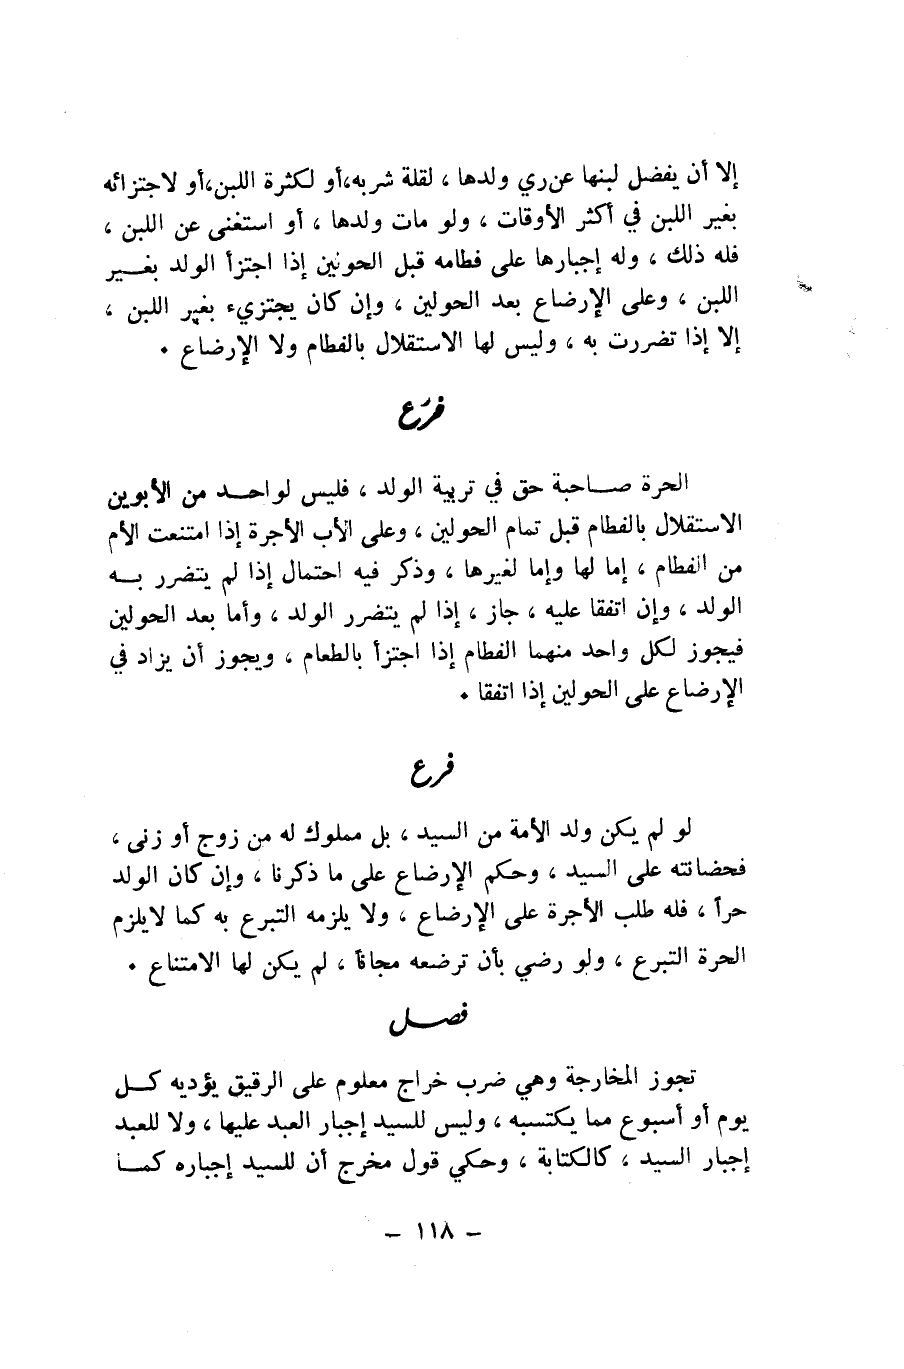 إلا أن يفضل لبنها عن ري ولدها ، لقلة شربه ، أو لكثرة اللبن ، أو لاجتزائه
بغير اللبن في أكثر الأوقات ، ولو مات ولدها ، أو استغنى عن اللبن ،
فله ذلك ، وله إجبارها على فطامه قبل الحولين إذا اجتزأ الولد بغـــير
اللبن ، وعلى الإرضاع بعد الحولين ، وإن كان يجتزيء بغير اللبن ،
إلا إذا تضررت به ، وليس لها الاستقلال بالفطام ولا الإرضاع .
فرَع
الحرة صـــاحبة حق في تربية الولد ، فليس لواحـــد من الأبوين
الاستقلال بالفطام قبل تمام الحولين ، وعلى الأب الأجرة إذا امتنعت الأم
من الفطام ، إما لها وإما لغيرها ، وذكر فيه احتمال إذا لم يتضرر بـــه
الولد ، وإن اتفقا عليه ، جاز ، إذا لم يتضرر الولد ، وأما بعد الحولين
فيجوز لكل واحد منهما الفطام إذا اجتزأ بالطعام ، ويجوز أن يزاد في
الإرضاع على الحولين إذا اتفقا .
فرع
لو لم يكن ولد الأمة من السيد ، بل مملوك له من زوج أو زنى ،
فحضانته على السيد ، وحكم الإرضاع على ما ذكرنا ، وإن كان الولد
حراً ، فله طلب الأجرة على الإرضاع ، ولا يلزمه التبرع به كما لا يلزم
الحرة التبرع ، ولو رضي بأن ترضعه مجاناً ، لم يكن لها الامتناع .
فصـــل
تجوز المخارجة وهي ضرب خراج معلوم على الرقيق يؤديه كـــل
يوم أو أسبوع مما يكتسبه ، وليس للسيد إجبار العبد عليها ، ولا للعبد
إجبار السيد ، كالكتابة ، وحكي قول مخرج أن للسيد إجباره كمـــا
– ١١٨ –